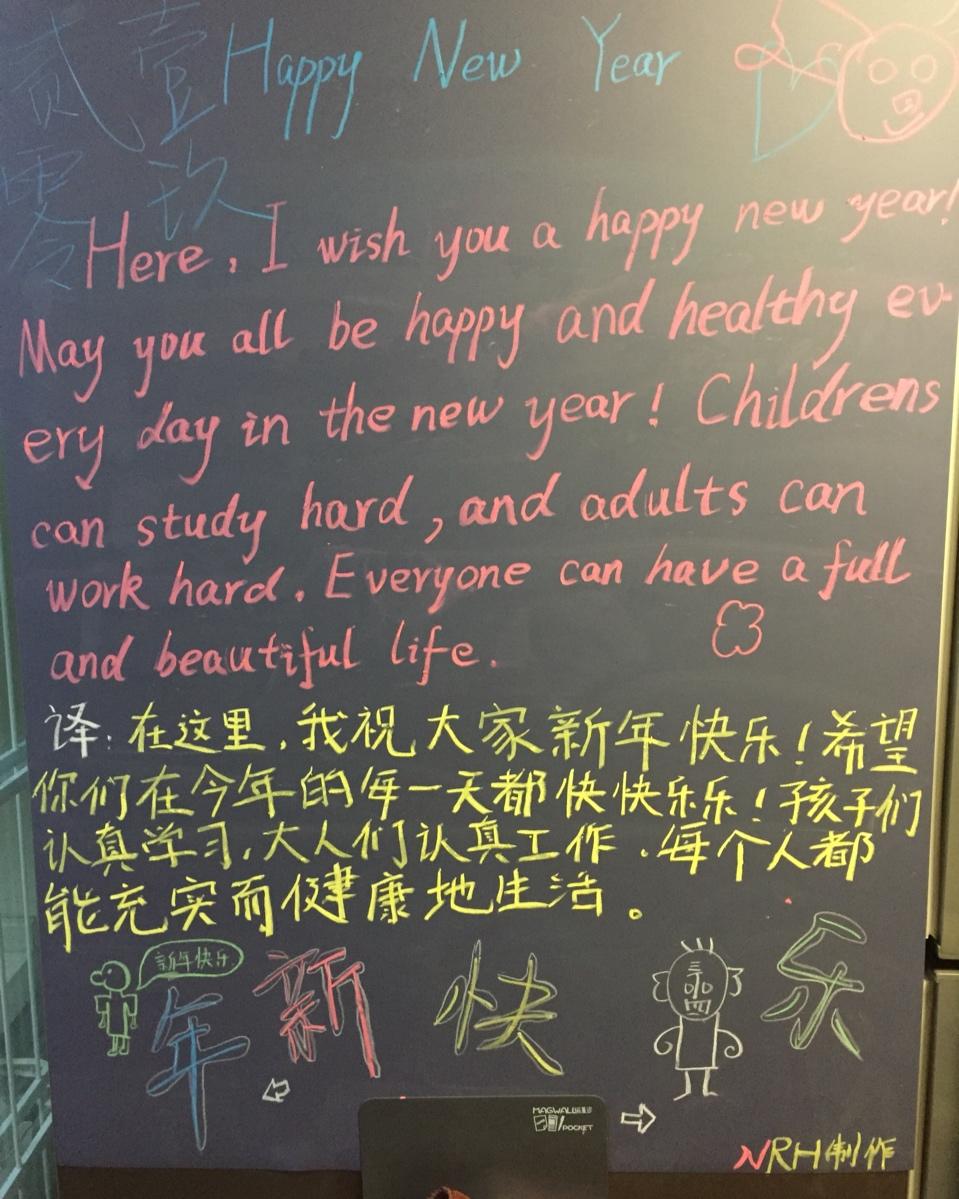 Happy New Year
贰 壹
零 玖
Here, I wish you a happy new year!
May you all be happy and healthy ev-
ery day in the new year! Childrens
can study hard, and adults can
work hard. Everyone can have a full
and beautiful life.
译: 在这里,我祝大家新年快乐!希望
你们在今年的每一天都快快乐乐!孩子们
认真学习,大人们认真工作.每个人都
能充实而健康地生活。
新年快乐
年 新 快 乐
MAGWALL
/POCKET
NRH制作